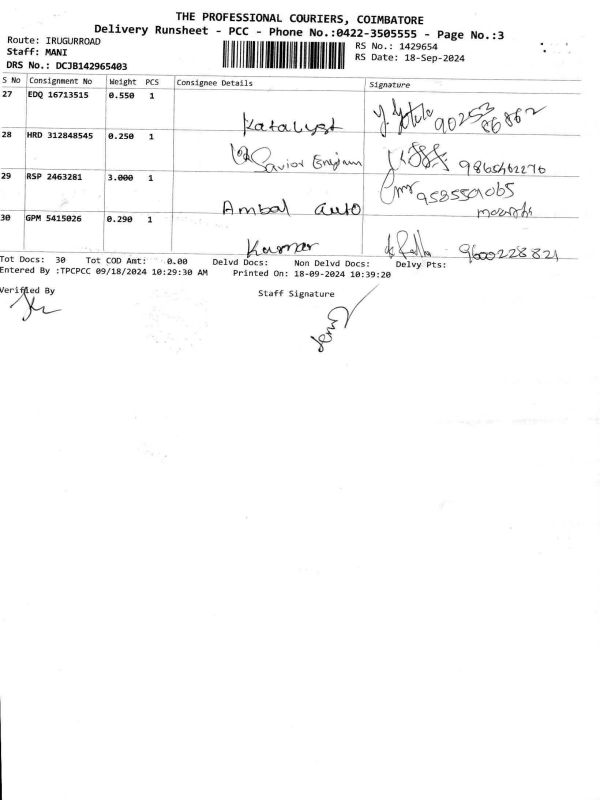 THE PROFESSIONAL COURIERS, COIMBATORE
Delivery Runsheet - PCC - Phone No.:0422-3505555 - Page No.:3
Route: IRUGURROAD
Staff: MANI
DRS No.: DCJB142965403
RS No.: 1429654
RS Date: 18-Sep-2024
S No Consignment No Weight PCS Consignee Details Signature
27 EDQ 16713515 0.550 1
Katalyst 90253 86862
28 HRD 312848545 0.250 1
Savior
29 RSP 2463281 3.000 1
Ambal auto
30 GPM 5415026 0.290 1
Kumar 9600228821
Tot Docs: 30 Tot COD Amt: 0.00 Delvd Docs: Non Delvd Docs: Delvy Pts:
Entered By :TPCPCC 09/18/2024 10:29:30 AM Printed On: 18-09-2024 10:39:20
Verified By Staff Signature